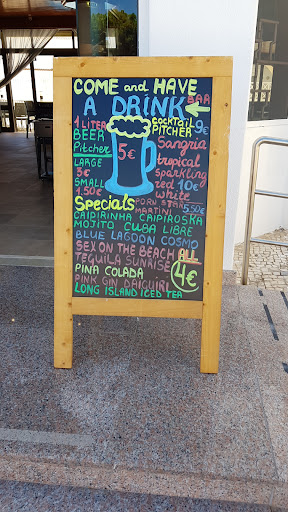 COME and HAVE
A DRINK BAR
1 LITER
BEER
Pitcher
LARGE
3€
SMALL
1.50€
5€
COCKTAIL
PITCHER 9€
Sangria
tropical
sparkling
red 10€
white
Specials
PORN STAR
MARTINI 5.50€
CAIPIRINHA CAIPIROSKA
MOJITO CUBA LIBRE
BLUE LAGOON COSMO
SEX ON THE BEACH ALL
TEQUILA SUNRISE 4€
PINA COLADA
PINK GIN DAIQUIRI
LONG ISLAND ICED TEA